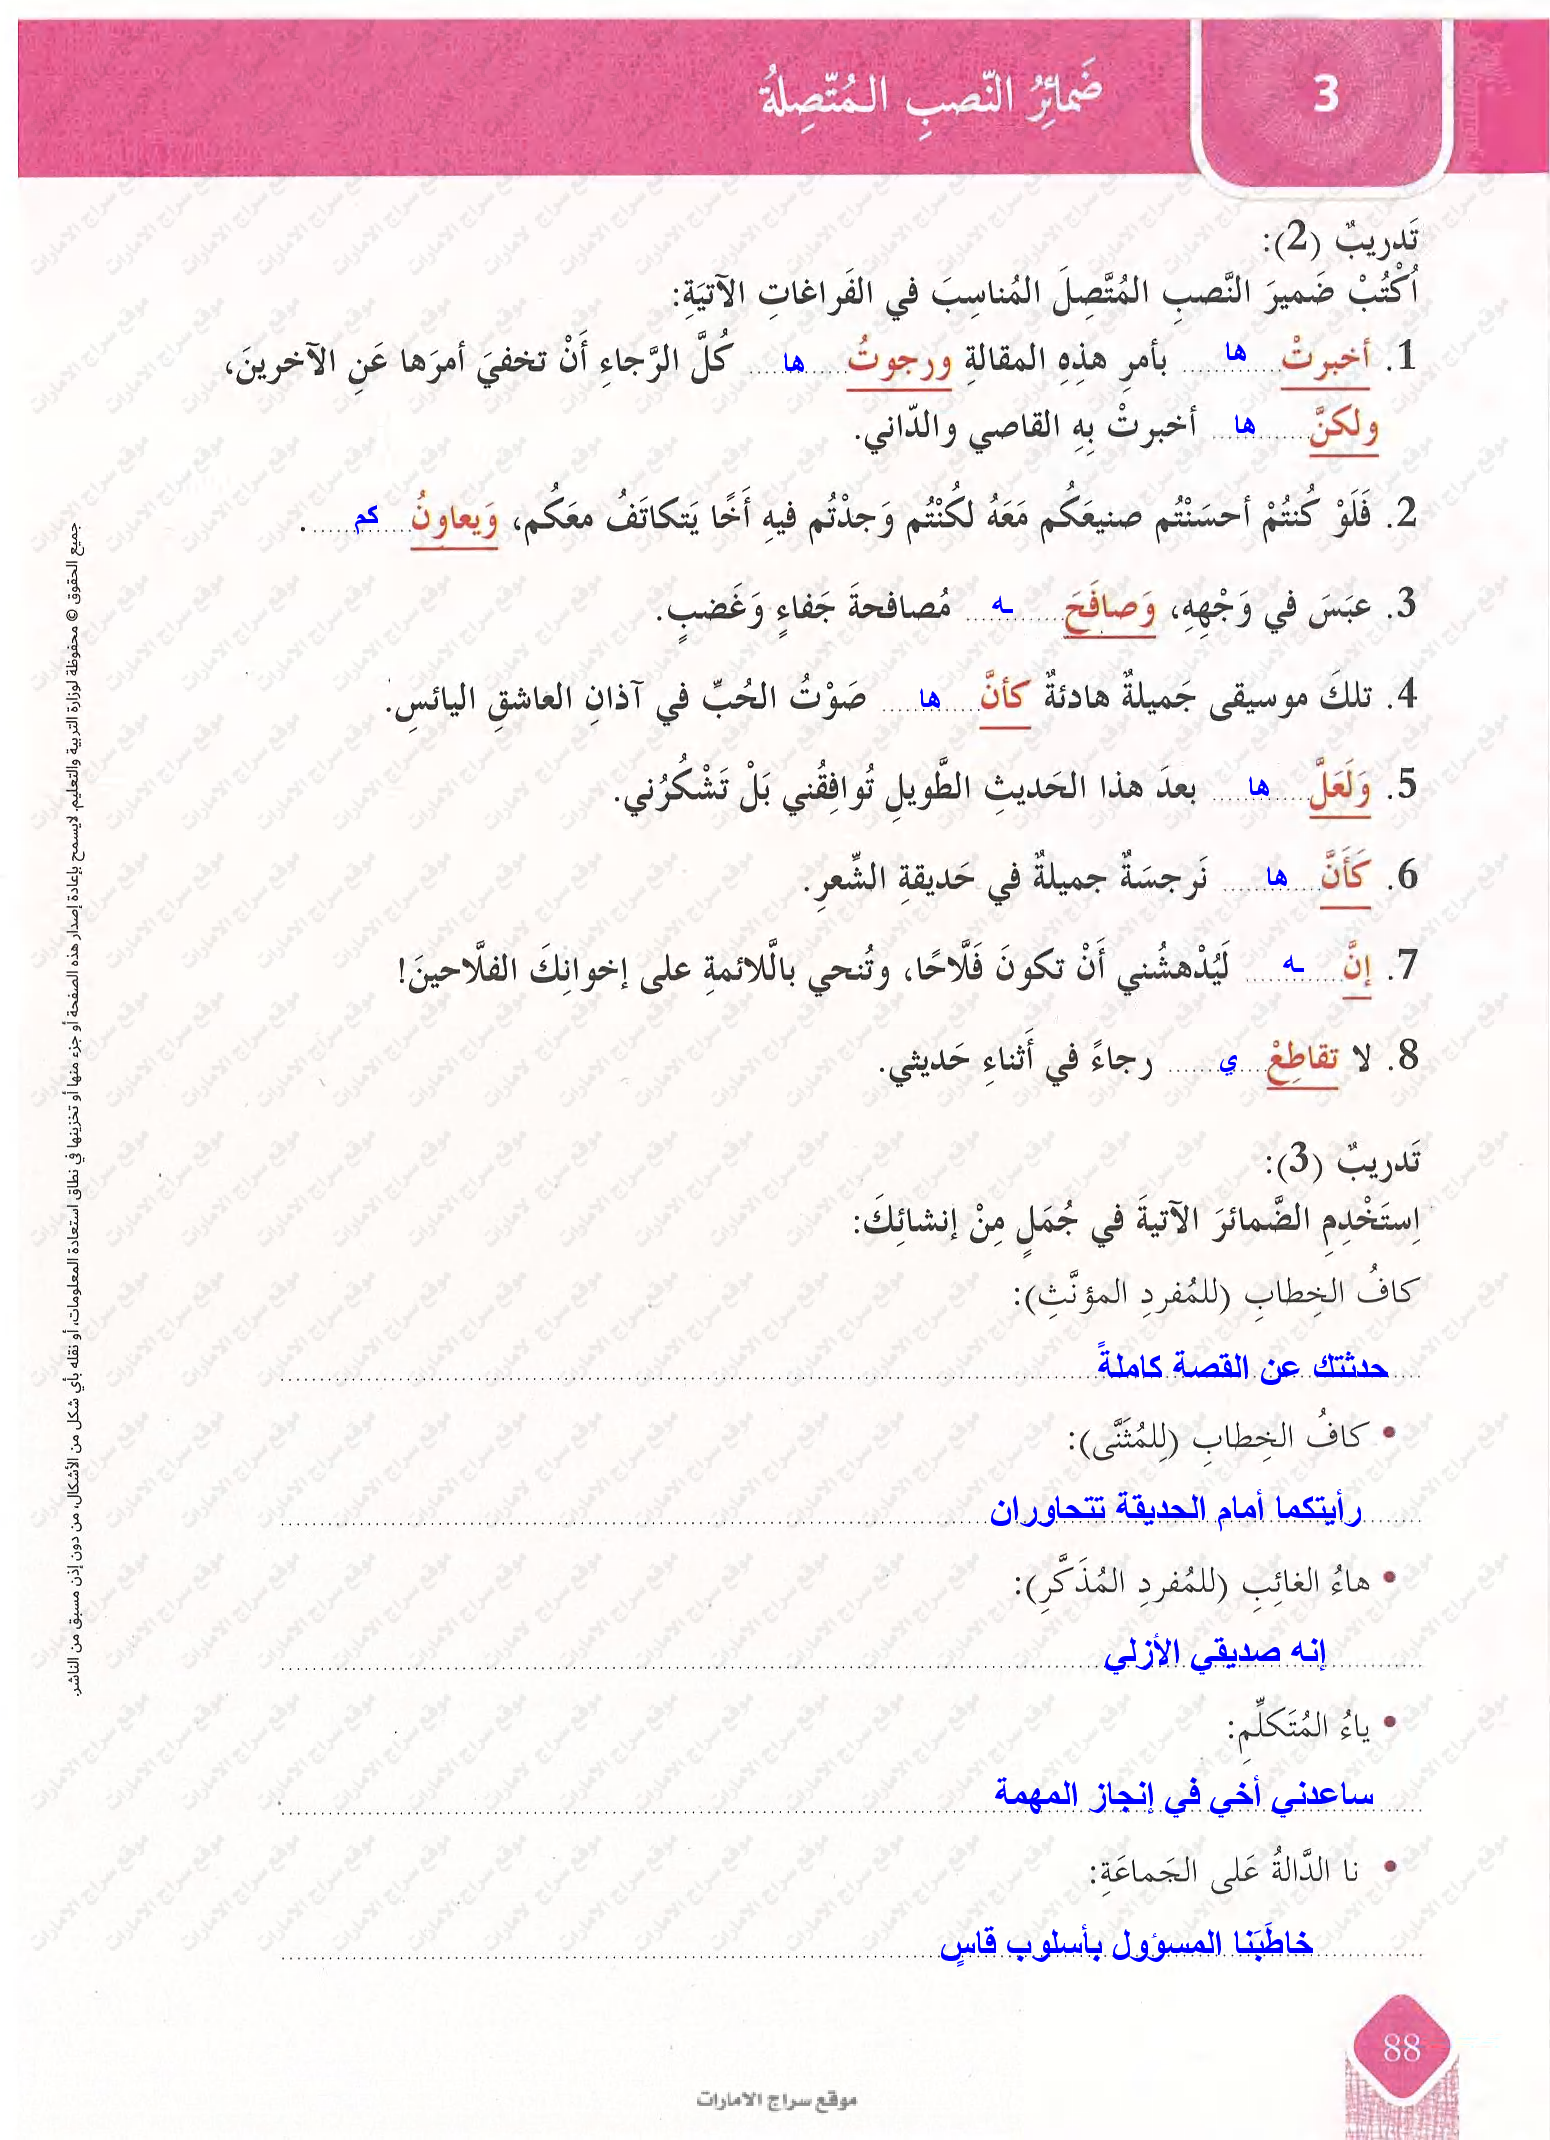 3
ضَمائِرُ النّصبِ المُتّصِلةُ
تَدريبٌ (2):
اُكْتُبْ ضَميرَ النَّصبِ المُتَّصِلَ المُناسِبَ في الفَراغاتِ الآتيَةِ:
1. أخبرتْ ها بأمرِ هذِهِ المقالةِ ورجوتُ ها كُلَّ الرَّجاءِ أَنْ تخفيَ أمرَها عَنِ الآخرينَ،
ولكنَّ ها أخبرتْ بِهِ القاصي والدّاني.
2. فَلَوْ كُنتُمْ أحسَنْتُم صنيعَكُم مَعَهُ لكُنْتُم وَجدْتُم فيهِ أَخًا يَتكاتَفُ معَكُم، وَيعاونُ كم .
3. عبَسَ في وَجْهِهِ، وَصافَحَ ـه مُصافحةَ جَفاءٍ وَغَضبٍ.
4. تلكَ موسيقى جَميلةٌ هادئةٌ كأنَّ ها صَوْتُ الحُبِّ في آذانِ العاشقِ اليائسِ.
5. وَلَعَلَّ ها بعدَ هذا الحَديثِ الطَّويلِ تُوافِقُني بَلْ تَشْكُرُني.
6. كَأَنَّ ها نَرجسَةٌ جميلةٌ في حَديقةِ الشِّعرِ.
7. إنَّ ـه لَيُدْهشُني أَنْ تكونَ فَلَّاحًا، وتُنحي بالَّلائمةِ على إخوانِكَ الفلَّاحينَ!
8. لا تقاطِعْ ي رجاءً في أَثناءِ حَديثي.
تَدريبٌ (3):
اِستَخْدِمِ الضَّمائرَ الآتيةَ في جُمَلٍ مِنْ إنشائِكَ:
كافُ الخِطابِ (للمُفردِ المؤنَّثِ):
حدثتك عن القصة كاملةً
• كافُ الخِطابِ (لِلمُثَنَّى):
رأيتكما أمام الحديقة تتحاوران
• هاءُ الغائِبِ (للمُفردِ المُذَكَّرِ):
إنه صديقي الأزلي
• ياءُ المُتَكلِّمِ:
ساعدني أخي في إنجاز المهمة
• نا الدَّالةُ عَلى الجَماعَةِ:
خاطَبَنا المسؤول بأسلوب قاسٍ
88
موقع سراج الامارات
جميع الحقوق © محفوظة لوزارة التربية والتعليم. لايسمح بإعادة إصدار هذه الصفحة أو جزء منها أو تخزينها في نطاق استعادة المعلومات، أو نقله بأي شكل من الأشكال، من دون إذن مسبق من الناشر.